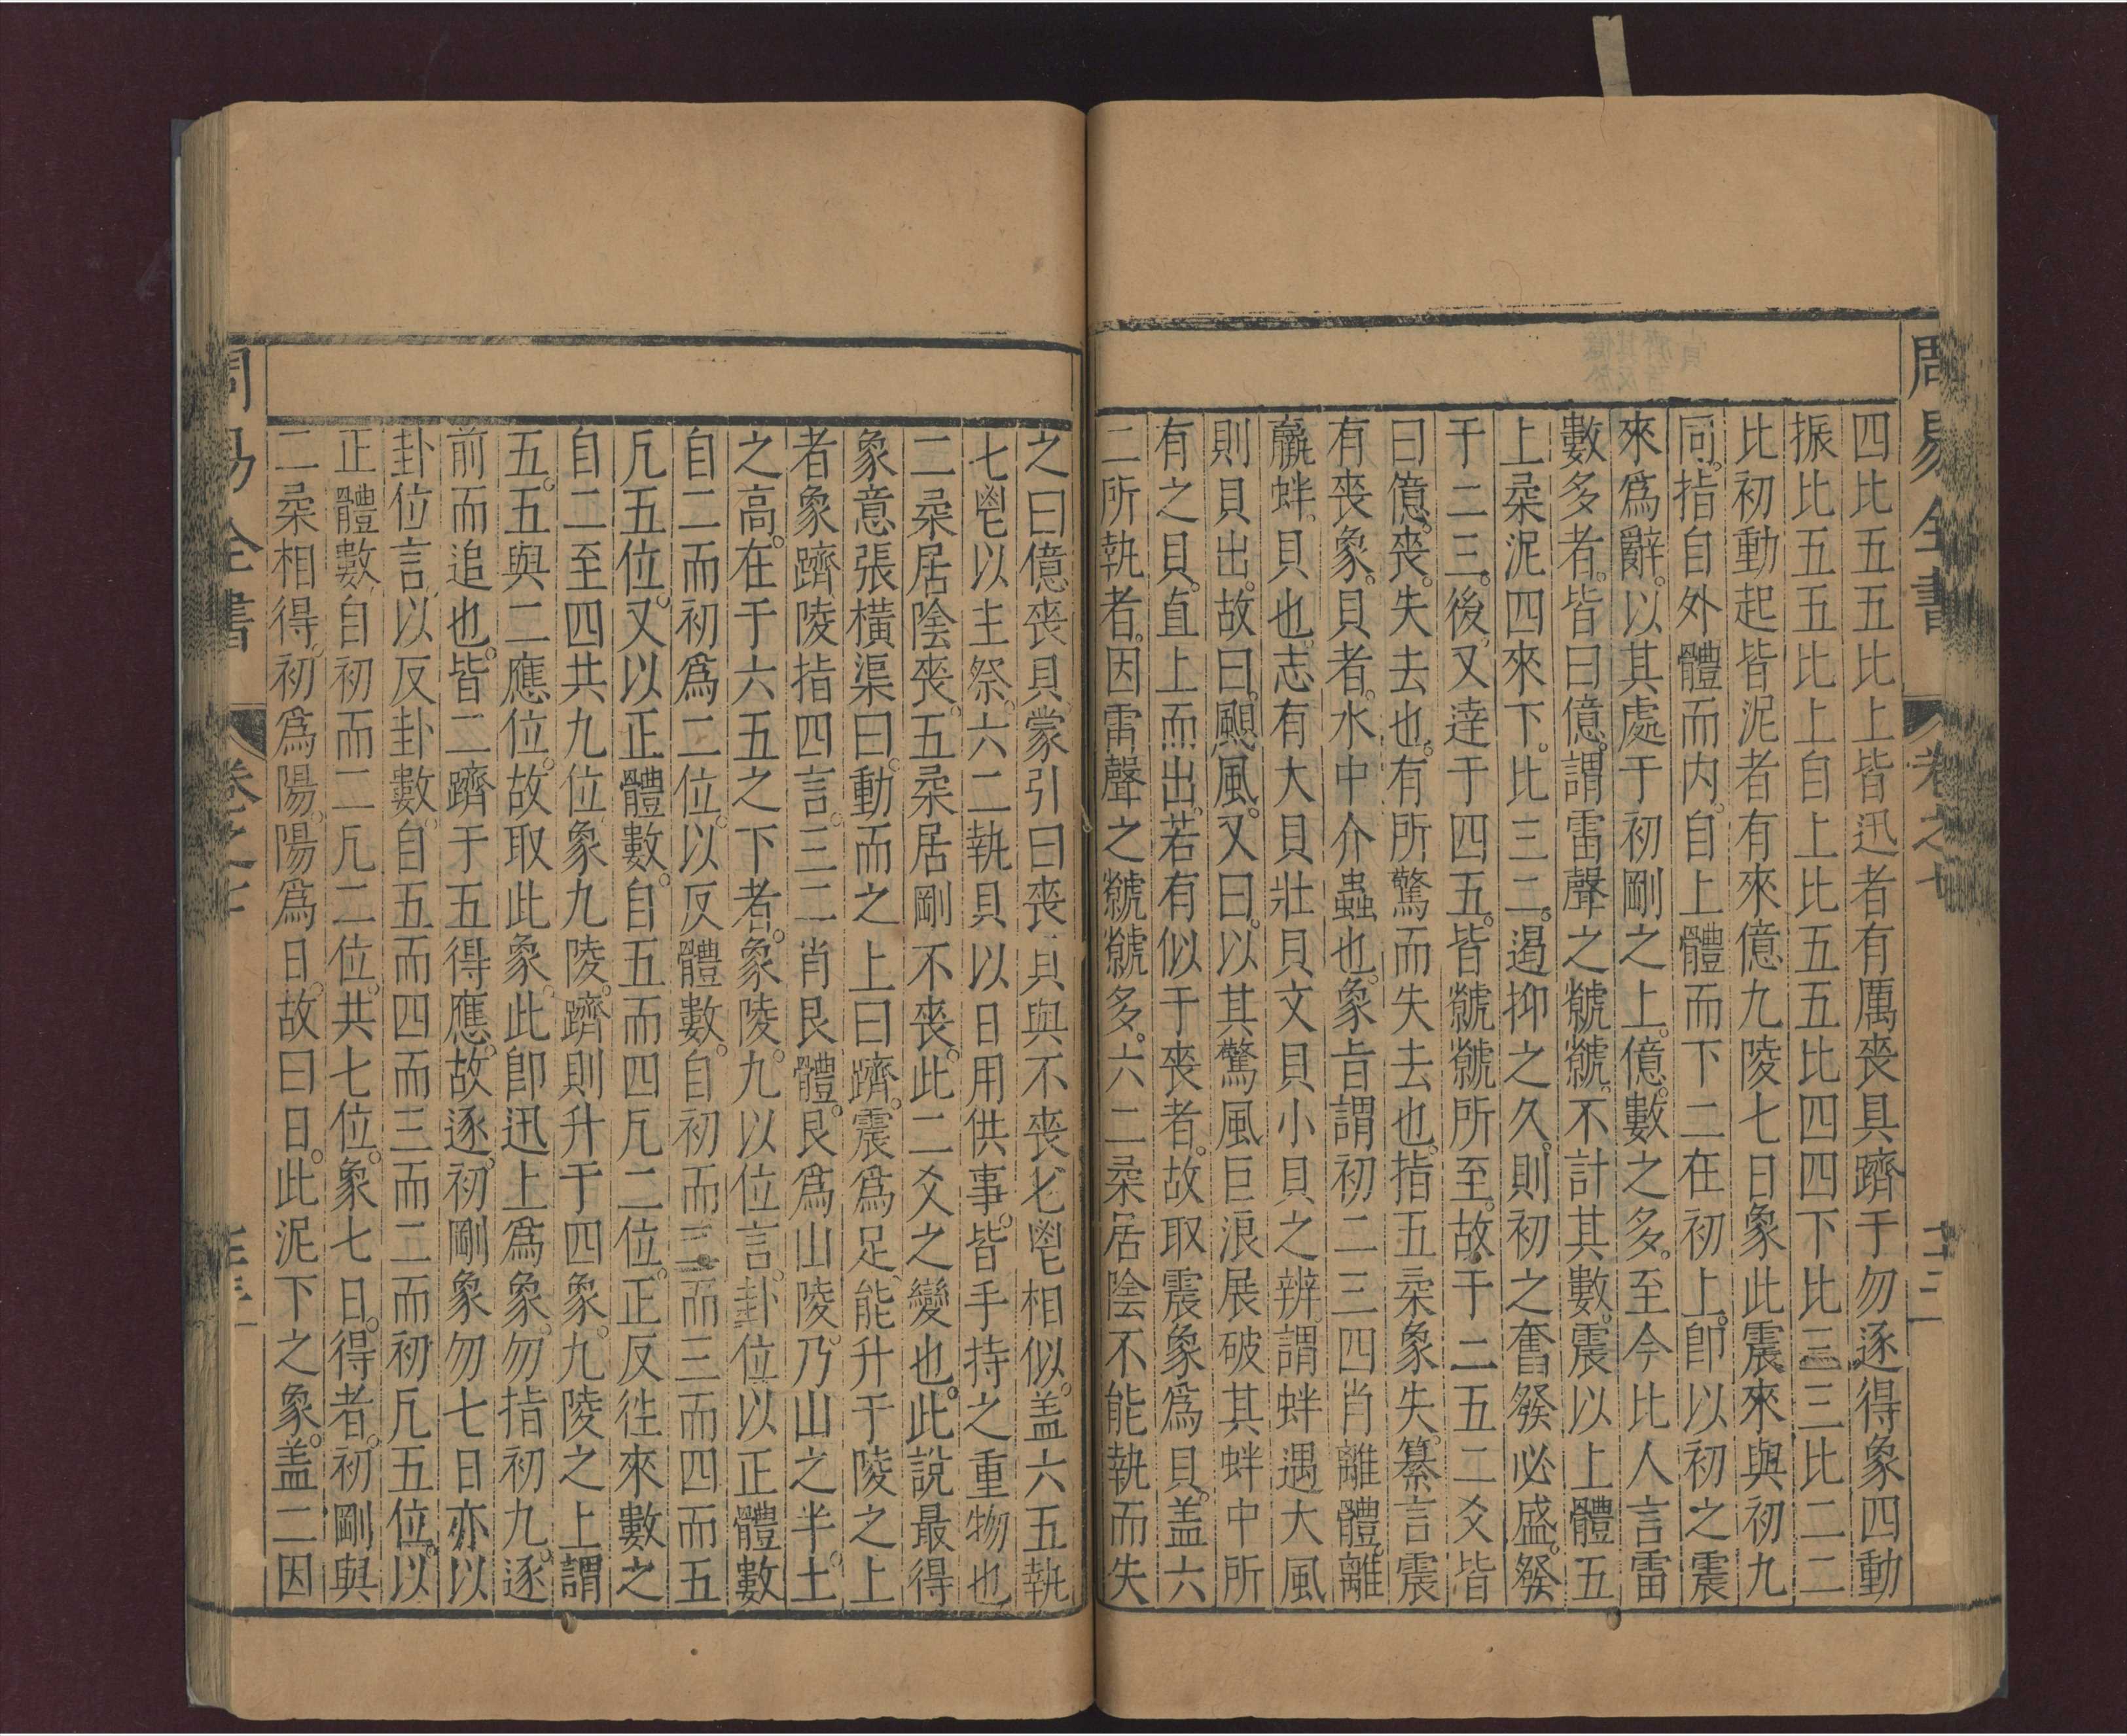 周易全書
卷之七
四比五五比上皆迅者有厲喪具躋于勿逐得象四動
振比五五比上自上比五五比四四下比三三比二二
比初動起皆泥者有來億九陵七日象此震來與初九
同。指自外體而内。自上體而下二在初上。卽以初之震
來爲辭。以其處于初剛之上。億。數之多。至今比人言雷
數多者。皆曰億。謂雷聲之虩虩。不計其數。震以上體五
上柔泥四來下。比三二。遏抑之久。則初之奮發必盛。發
于二三。後又逹于四五。皆虩虩所至。故于二五二爻皆
曰億。喪。失去也。有所驚而失去也。指五柔象失。纂言震
有喪象。貝者。水中介蟲也。象旨謂初二三四肖離體。離
蠃蚌。貝也。志有大貝壯貝文貝小貝之辨。謂蚌遇大風
則貝出。故曰。颶風。又曰。以其驚風巨浪展破其蚌中所
有之貝。直上而出。若有似于喪者。故取震象爲貝。盖六
二所執者。因雷聲之虩虩多。六二柔居陰不能執而失
之曰億喪貝。蒙引曰喪貝與不喪匕鬯相似。盖六五執
七鬯以主祭。六二執貝以日用供事。皆手持之重物也
二柔居陰喪。五柔居剛不喪。此二爻之變也。此說最得
象意張橫渠曰。動而之上曰躋。震爲足。能升于陵之上
者象躋陵指四言。三二肖艮體。艮爲山陵。乃山之半土
之高。在于六五之下者。象陵。九以位言。卦位以正體數
自二而初爲二位。以反體數。自初而二而三而四而五
凢五位。又以正體數。自五而四凢二位。正反徃來數之
自二至四共九位象九陵。躋則升于四象。九陵之上謂
五。五與二應位。故取此象。此卽迅上爲象。勿指初九。逐
前而追也。皆二躋于五得應。故逐。初剛象勿七日亦以
卦位言以反卦數。自五而四而三而二而初凢五位。以
正體數自初而二凢二位。共七位。象七日。得者。初剛與
二柔相得。初爲陽。陽爲日。故曰日。此泥下之象。盖二因
周易全書
卷之七